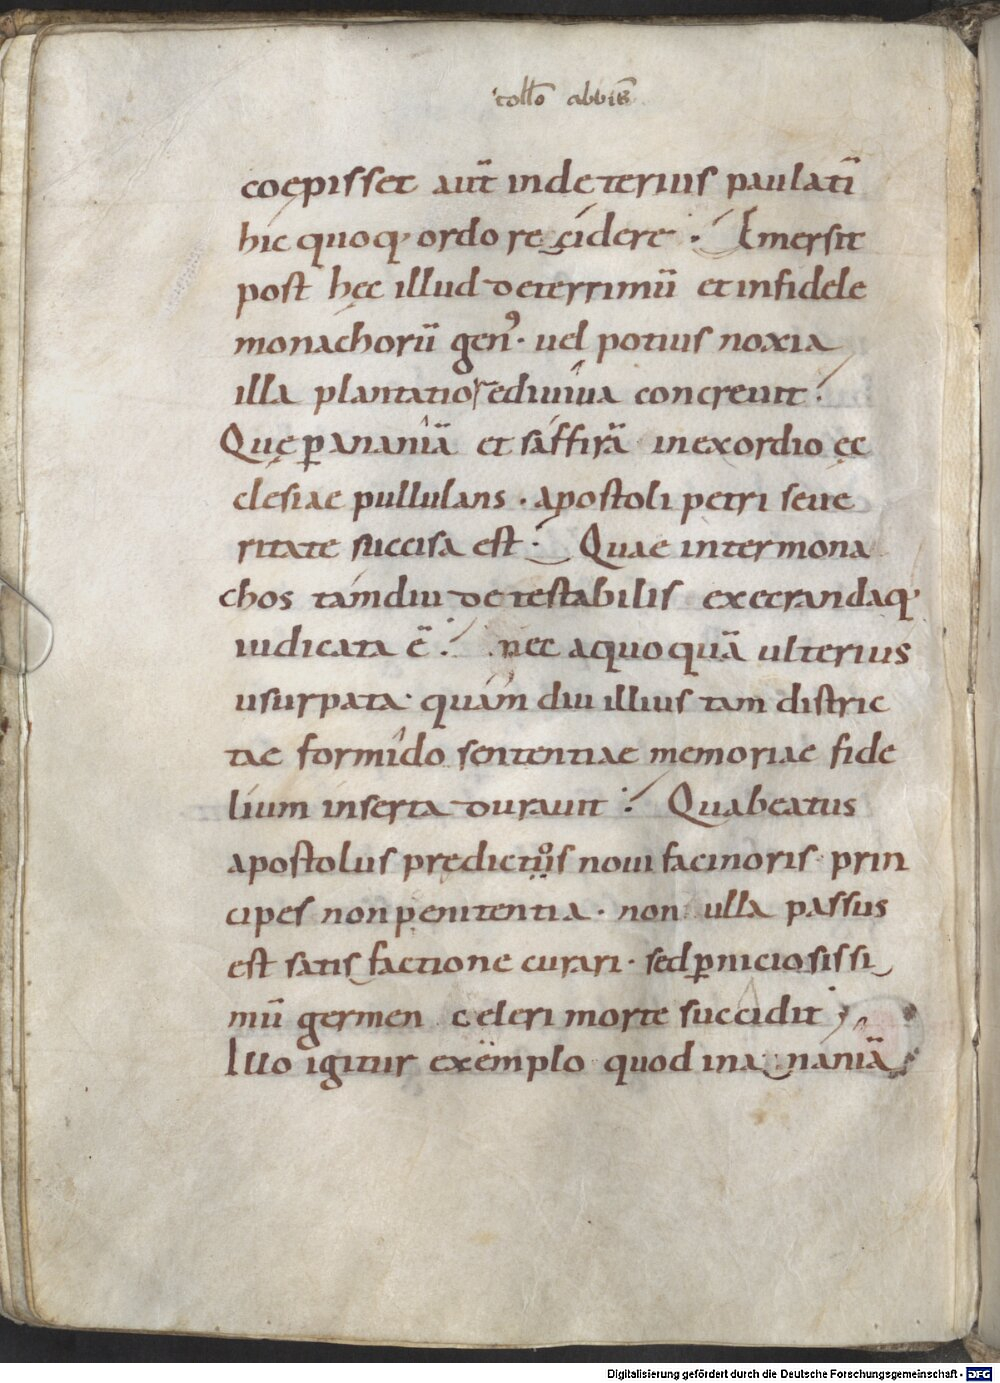 collo abbis
coepisset aut̄ indeterius paulatī
hic quoq; ordo re cidere · Emersit
post hęc illud deterrimū et infidele
monachorū gen᾽· uel potius noxia
illa plantatio rediuiua concreuit ·
Quę ꝑ ananiā et saffirā in exordio ęc
clesiae pullulans · apostoli petri seue
ritate succisa est · Quae inter mona
chos tamdiu detestabilis execrandaq;
iudicata ē · nec aquoquā ulterius
usurpata · quam diu illius tam distric
tae formido sententiae memoriae fide
lium inserta durauit · Qua beatus
apostolus prędictos noui facinoris prin
cipes non penitentia · non ulla passus
est satis factione curari · sed ꝑniciosissi
mū germen celeri morte succidit ;
Illo igitur exemplo quod in a naniā
Digitalisierung gefördert durch die Deutsche Forschungsgemeinschaft - DFG